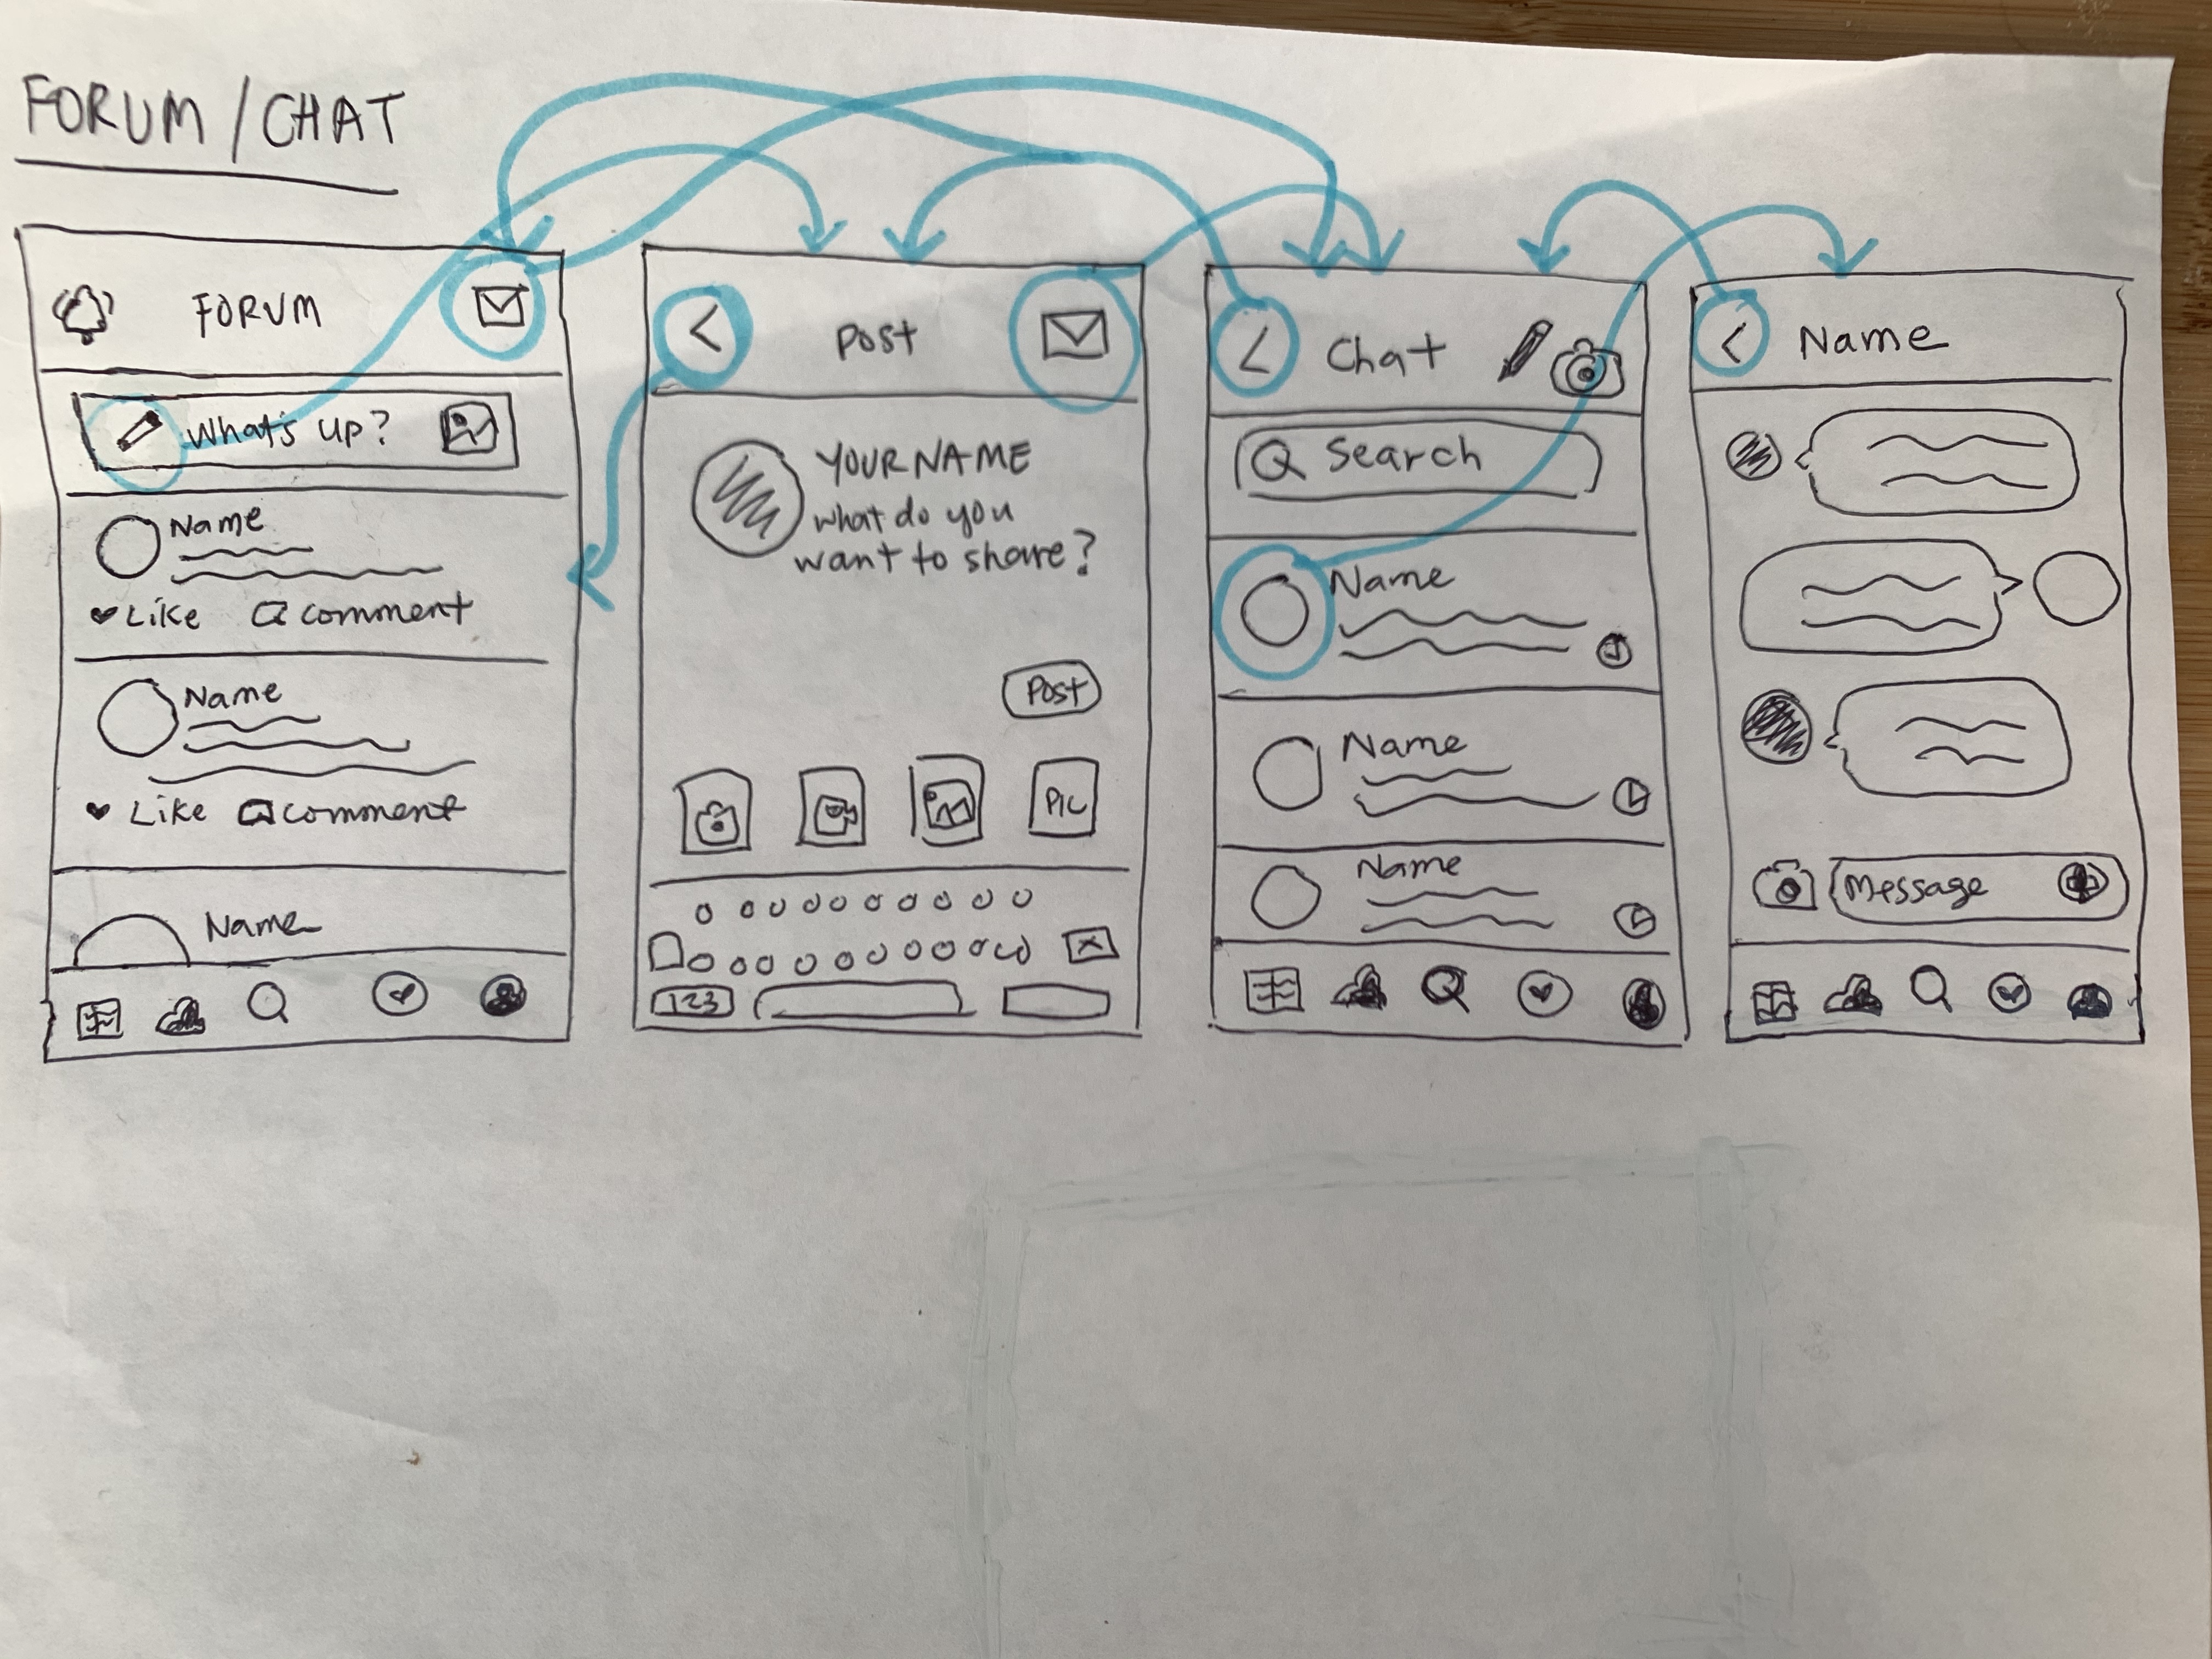 FORUM / CHAT
FORUM
What's up?
Name
Like comment
Name
Like comment
Name
Post
YOUR NAME
what do you
want to share?
Post
PIC
123
Chat
Search
Name
Name
Name
Name
Message